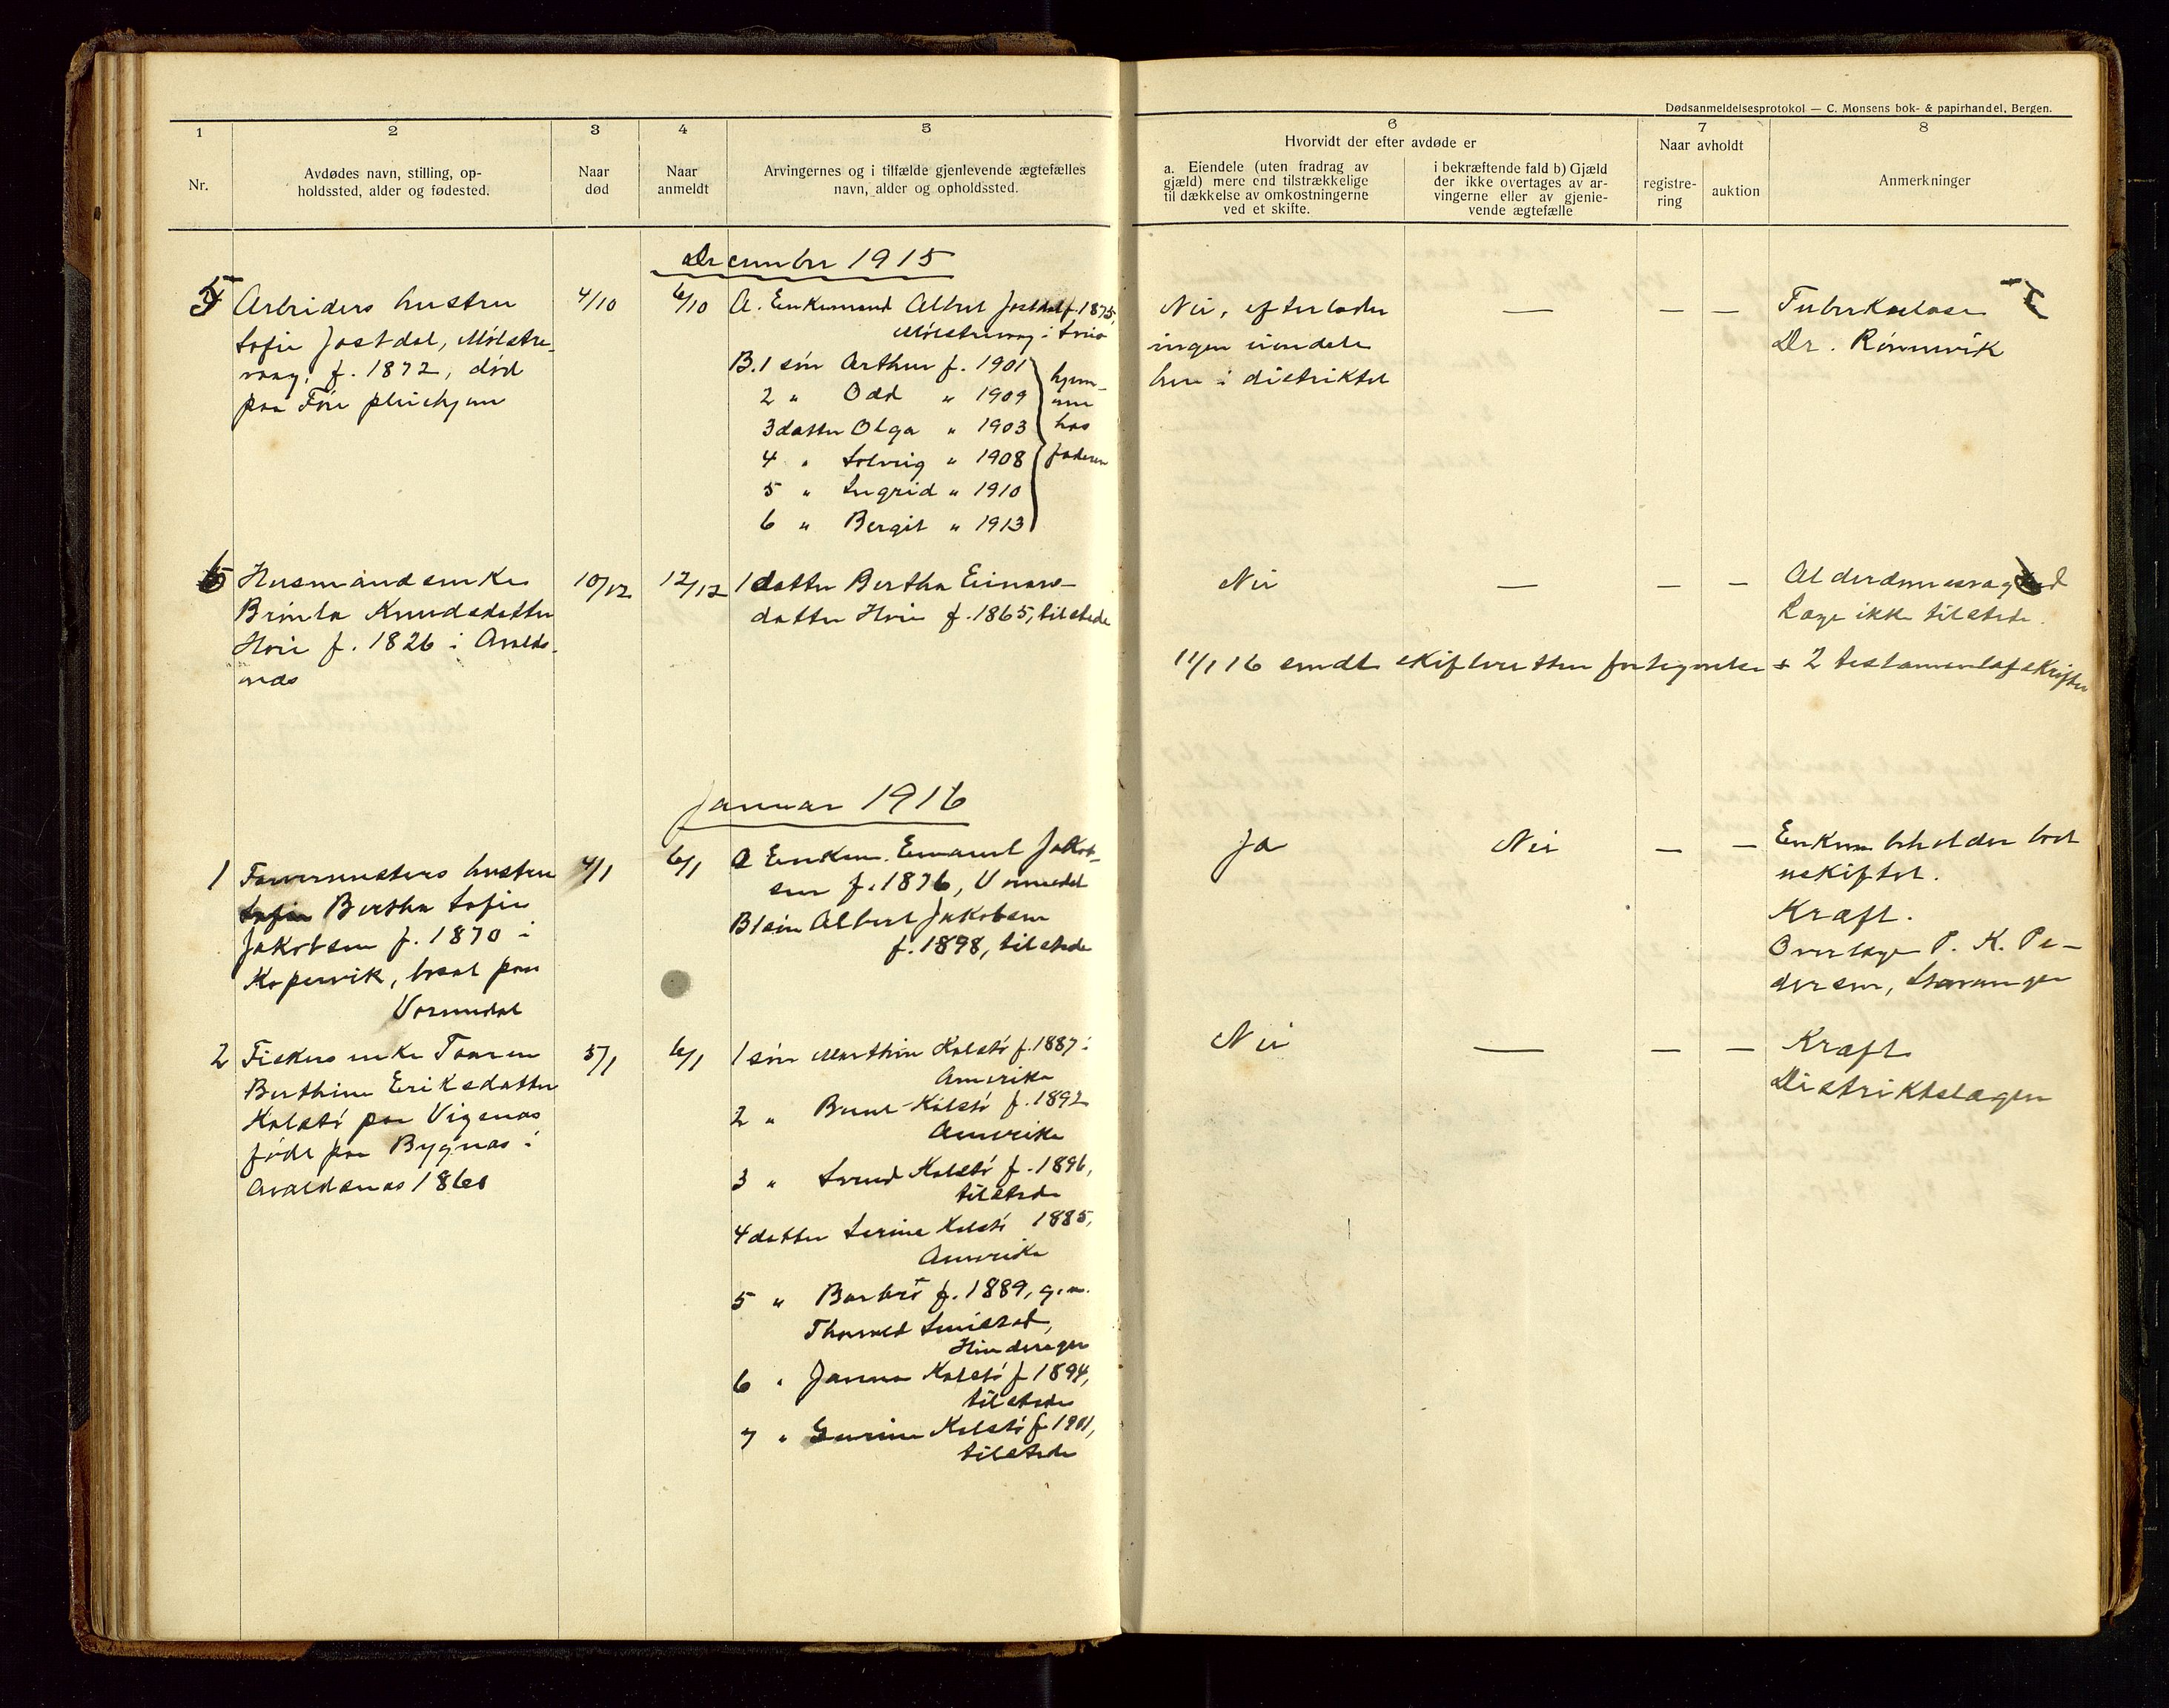 Dødsanmeldelsesprotokol — C. Monsens bok- & papirhandel, Bergen.
1
2
3
4
5
6
7
8
Nr.
Avdødes navn, stilling, op-
holdssted, alder og fødested.
Naar
død
Naar
anmeldt
Arvingernes og i tilfælde gjenlevende ægtefælles
navn, alder og opholdssted.
Hvorvidt der efter avdøde er
a. Eiendele (uten fradrag av
gjæld) mere end tilstrækkelige
til dækkelse av omkostningerne
ved et skifte.
i bekræftende fald b) Gjæld
der ikke overtages av ar-
vingerne eller av gjenle-
vende ægtefælle
Naar avholdt
registre-
ring
auktion
Anmerkninger
December 1915
5 Arbeiders hustru
Sofie Jostdal, Mölstre-
vaag, f. 1872, död
paa Före pleiehjem
4/10
6/10
A. Enkemand Albert Jostdal f. 1875,
Mölstrevaag i Sveio
B. 1 sön Arthur f. 1901
2 " Odd " 1909
3 datter Olga " 1903
4 " Solveig " 1908
5 " Ingrid " 1910
6 " Bergit " 1913
hjem-
me
hos
faderen
Nei, efterlader
ingen eiendele
her i distriktet
—
— —
Tuberkulose
Dr. Rönnevik
6 Husmandsenke
Brönla Knudsdatter
Hoie f. 1826 i Avalds-
nes
10/12
12/12
1 datter Bertha Einars-
datter Hoie f. 1865, tilstede
Nei
—
— —
Alderdomssvaghed
Læge ikke tilstede.
11/1 16 sendt skifteretten fortegnelse + 2 testamentafskrifter
Januar 1916
1 Farvermesters hustru
Bertha Sofie
Jakobsen f. 1870 i
Kopervik, bosat paa
Vormedal
4/1
6/1
A Enkem. Emanuel Jakob-
sen f. 1876, Vormedal
B 1 sön Albert Jakobsen
f. 1898, tilstede
Ja
Nei
— —
Enkem beholder boet
uskiftet.
Kræft.
Overlæge P. K. Pe-
dersen, Stavanger
2 Fiskers enke Taaren
Berthine Eriksdatter
Kolstö paa Vigenes
född paa Bygnes i
Avaldsnes 1861
5/1
6/1
1 sön Marthin Kolstö f. 1887 i
Amerika
2 " Bernt Kolstö f. 1892
Amerika
3 " Svend Kolstö f. 1896,
tilstede
4 datter Serine Kolstö 1885,
Amerika
5 " Barbro f. 1889, g.m.
Thorvald
Hinderager
6 " Janna Kolstö f 1894,
tilstede
7 " Kolstö f 1901,
tilstede
Nei
—
— —
Kræft
Distriktslægen